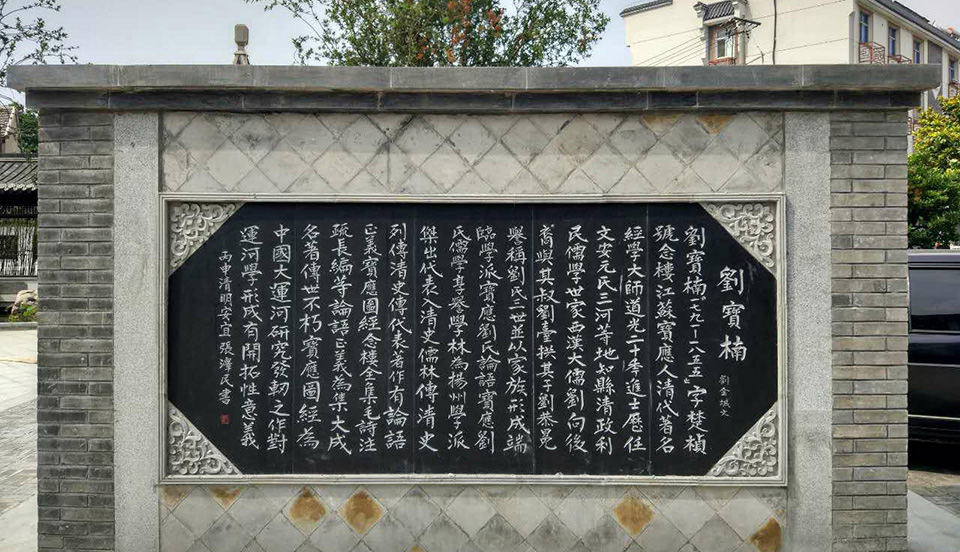 劉寶楠
劉金
文
劉寶楠（一七九一-一八五五）字楚楨
號念樓江蘇寶應人清代著名
經學大師道光二十年進士歷任
文安元氏三河等地知縣清政利
民儒學世家西漢大儒劉向後
裔與其叔劉臺拱其子劉恭冕
譽稱劉氏三世並以家族形成端
臨學派寶應劉氏論語寶應劉
氏儒學其譽學林為楊州學派
傑出代表入清史儒林傳清史
列傳清史傳代表著作有論語
正義寶應圖經念樓全集毛詩注
疏長編等論語正義為集大成
名著傳世不朽寶應圖經為
中國大運河研究發軔之作對
運河學形成有開拓性意義
丙申清明安宜張澤民書